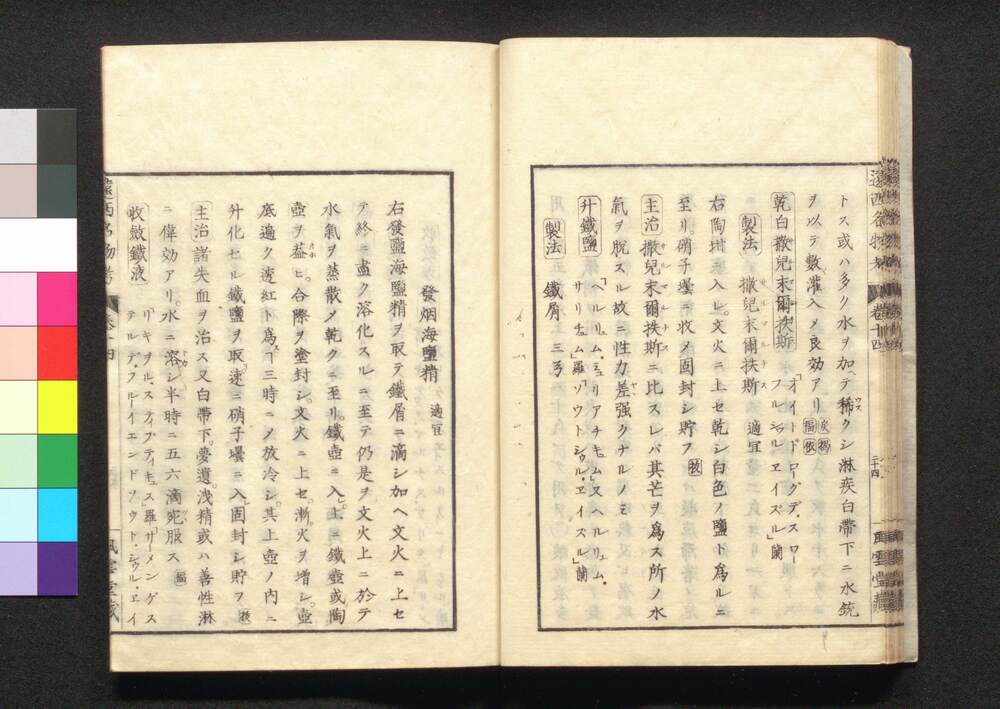 トス或ハ多ク水ヲ加ヘテ稀クシ淋疾白帶下ニ水銃
ヲ以テ數灌入メ良効アリ
乾白撒兒末爾扶斯「オイトドローグデ・スロー
フルシュルヱイズル」蘭
製法 撒兒末爾扶斯 適宜
右陶坩ニ入レ文火ニ上セ乾シ白色ノ鹽ト爲ルニ
至リ硝子壜ニ收メ固封シ貯フ
主治 撒兒末爾扶斯ニ比スレバ其芒ヲ爲ス所ノ水
氣ヲ脱スル故ニ性力差强クナルノミ
升鐵鹽「ヘルリュム・ミュリアチキュム」又ヘルリュム・
サリチュム」羅「ソウウトシュル・ヱイズル」蘭
製法 鐵屑 三弓
發烟海鹽精 適宜
右發鹽海鹽精ヲ取テ鐵屑ニ滴シ加ヘ文火ニ上セ
テ終ニ盡ク溶化スルニ至テ仍是ヲ文火上ニ於テ
水氣ヲ蒸散メ乾クニ至リ鐵壺ニ入レ上ニ鐵壺或陶
壺ヲ葢ヒ合際ヲ塗封シ文火ニ上セ漸火ヲ增シ壺
底遍ク透紅ト爲ヿ三時ニメ放冷シ其上壺ノ内ニ
升化セル鐵鹽ヲ取速ニ硝子壜ニ入固封シ貯ヲ
主治 諸失血ヲ治ス又白帶下夢遺洩精或ハ善性淋
ニ偉効アリ水ニ溶シ半時ニ五六滴宛服ス
收斂鐵液「リキヲル・スティプティキュス」羅「サーメンゲス
テルデ・フルーイエンドソウト・シュル・ヱイ
遠西名物考 卷十四 三十四 風雲堂藏